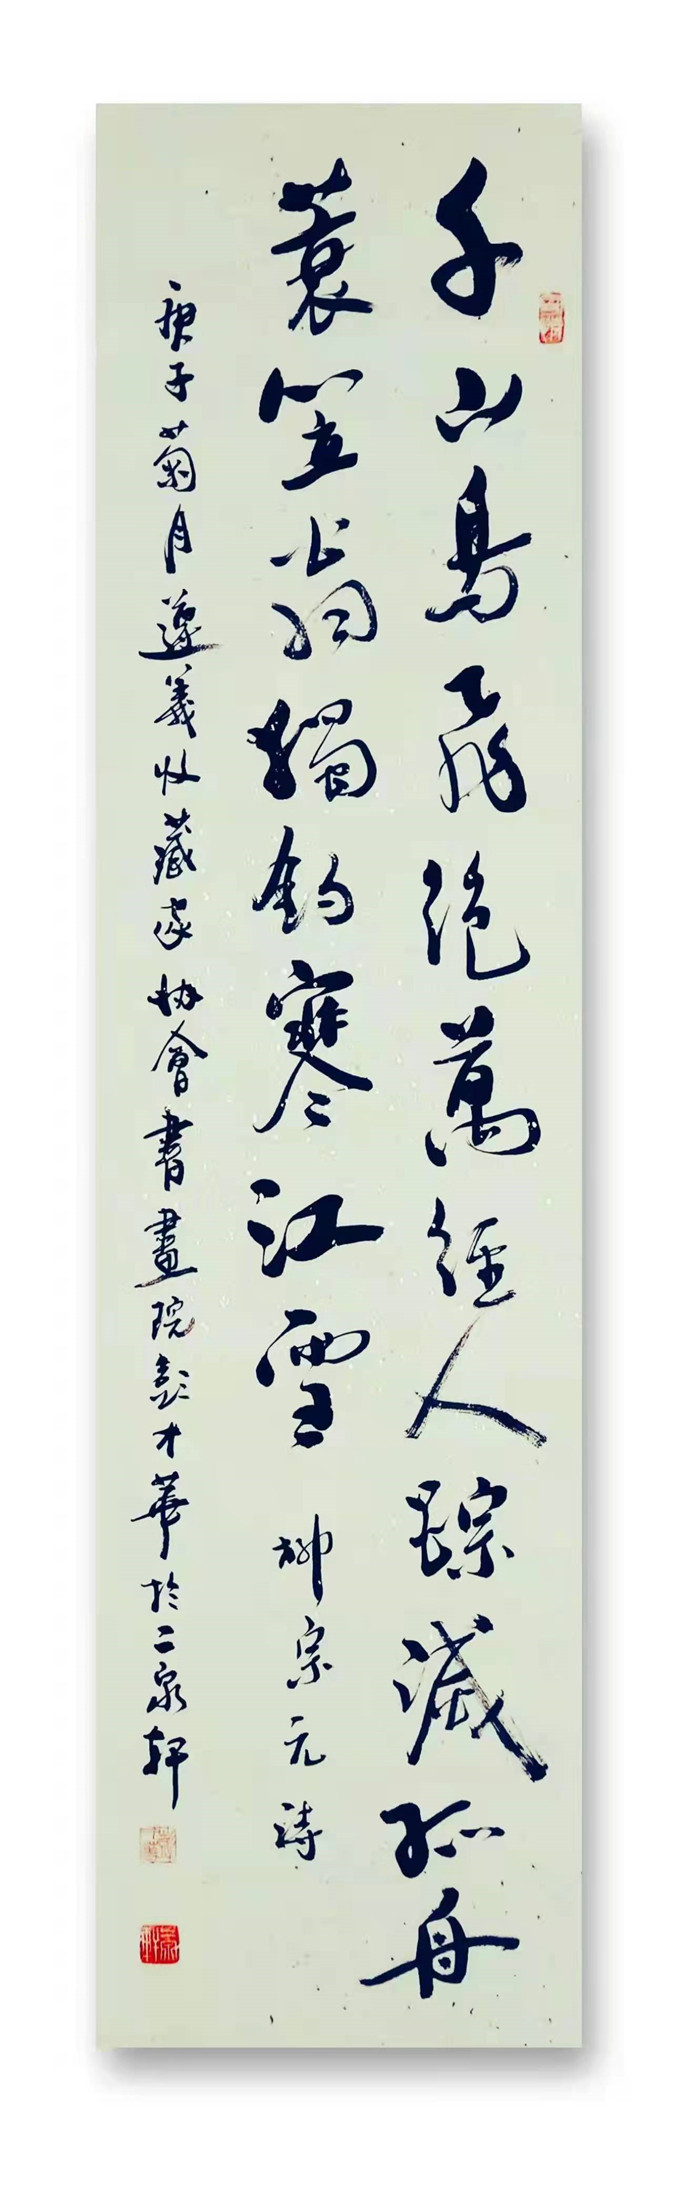 千山鳥飛絕萬径人踪滅孤舟
蓑笠翁獨釣寒江雪 柳宗元詩
庚子菊月遵義收藏家协會書畫院彭才華於二泉軒